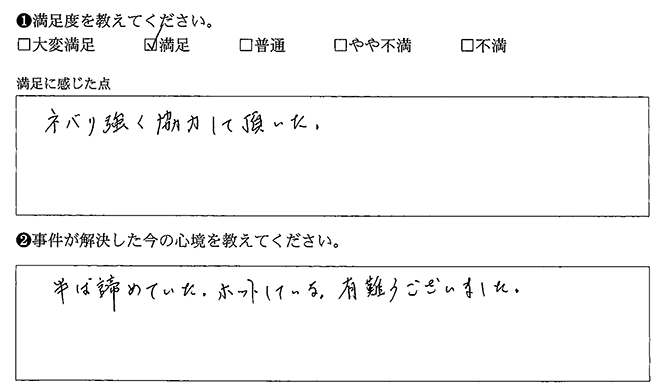 ❶満足度を教えてください。
□大変満足 ☑満足 □普通 □やや不満 □不満
満足に感じた点
ネバリ強く協力して頂いた。
❷事件が解決した今の心境を教えてください。
半ば諦めていた。ホットしている。有難うございました。